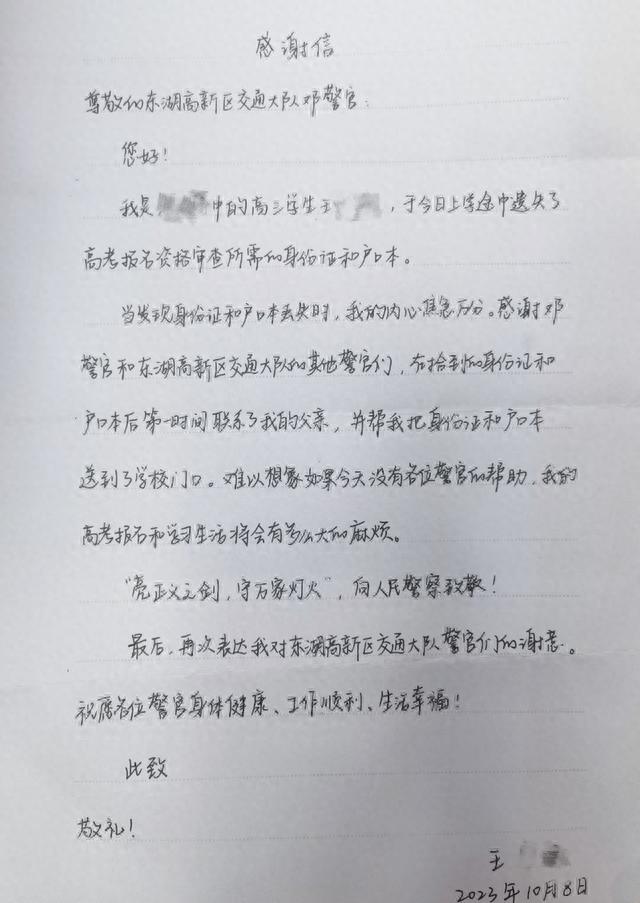 感谢信
尊敬的东湖高新区交通大队邓警官：
您好！
我是中的高三学生王，于今日上学途中遗失了
高考报名资格审查所需的身份证和户口本。
当发现身份证和户口本丢失时，我的内心焦急万分。感谢邓
警官和东湖高新区交通大队的其他警官们，在拾到的身份证和
户口本后第一时间联系了我的父亲，并帮我把身份证和户口本
送到了学校门口。难以想象如果今天没有各位警官的帮助，我的
高考报名和学习生活将会有多么大的麻烦。
“亮正义之剑，守万家灯火”，向人民警察致敬！
最后，再次表达我对东湖高新区交通大队警官们的谢意。
祝愿各位警官身体健康、工作顺利、生活幸福！
此致
敬礼！
王
2023年10月8日